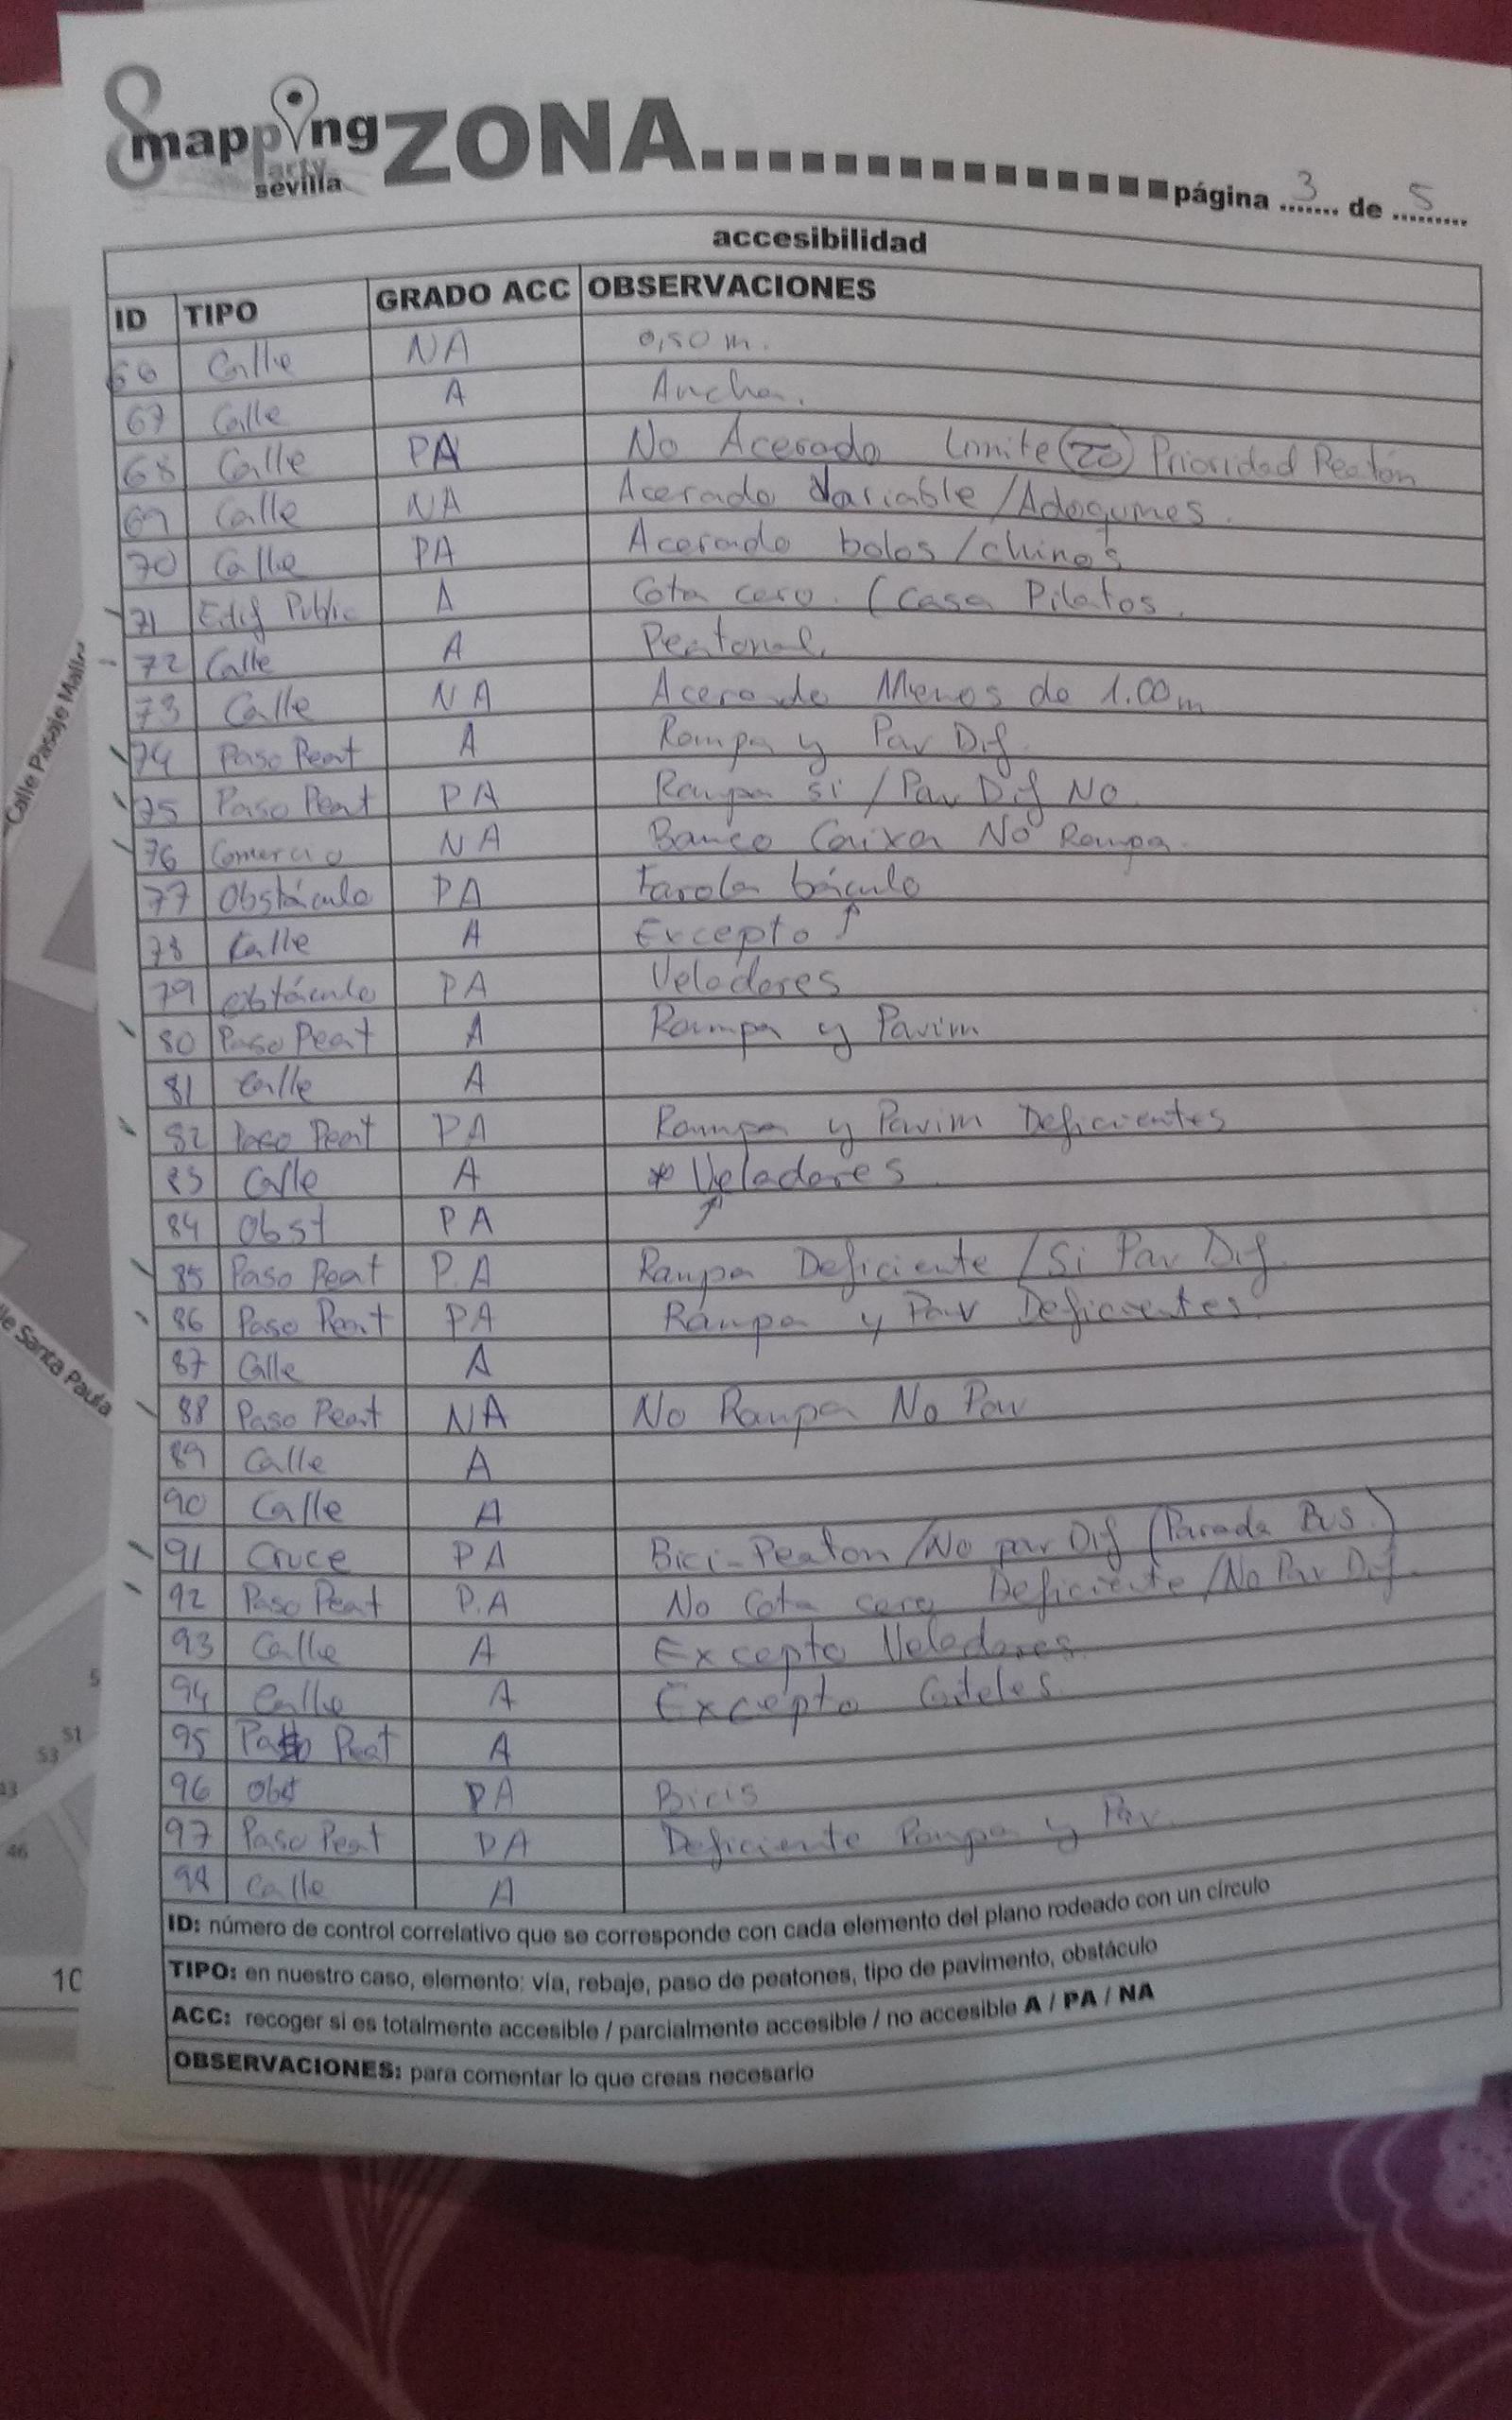 8 mapping party sevilla ZONA................ página 3 de 5
accesibilidad
ID TIPO GRADO ACC OBSERVACIONES
66 Calle NA 0,50 m.
67 Calle A Ancha.
68 Calle PA No Acerado Limite 20 Prioridad Peatón
69 Calle NA Acerado Variable / Adoquines.
70 Calle PA Acerado bolos / chinos
71 Edif Public A Cota cero. (Casa Pilatos.
72 Calle A Peatonal.
73 Calle NA Acerado Menos de 1.00 m
74 Paso Peat A Rampa y Pav Dif.
75 Paso Peat PA Rampa si / Pav Dif No.
76 Comercio NA Banco Caixa No Rampa.
77 Obstáculo PA Farola báculo
78 Calle A Excepto ↑
79 Obstáculo PA Veladores
80 Paso Peat A Rampa y Pavim
81 Calle A
82 Paso Peat PA Rampa y Pavim Deficientes
83 Calle A * Veladores.
84 Obst PA ↑
85 Paso Peat P.A Rampa Deficiente / Si Pav Dif.
86 Paso Peat PA Rampa y Pav Deficientes.
87 Calle A
88 Paso Peat NA No Rampa No Pav
89 Calle A
90 Calle A
91 Cruce PA Bici-Peaton / No pav Dif (Parada Bus.)
92 Paso Peat P.A No Cota cero Deficiente / No Pav Dif.
93 Calle A Excepto Veladores.
94 Calle A Excepto Carteles.
95 Paso Peat A
96 Obst PA Bicis
97 Paso Peat PA Deficiente Rampa y Pav.
98 Calle A
ID: número de control correlativo que se corresponde con cada elemento del plano rodeado con un círculo
TIPO: en nuestro caso, elemento: vía, rebaje, paso de peatones, tipo de pavimento, obstáculo
ACC: recoger si es totalmente accesible / parcialmente accesible / no accesible A / PA / NA
OBSERVACIONES: para comentar lo que creas necesario
Calle Pasaje Mallo
lle Santa Paula
5
51
53
43
46
10